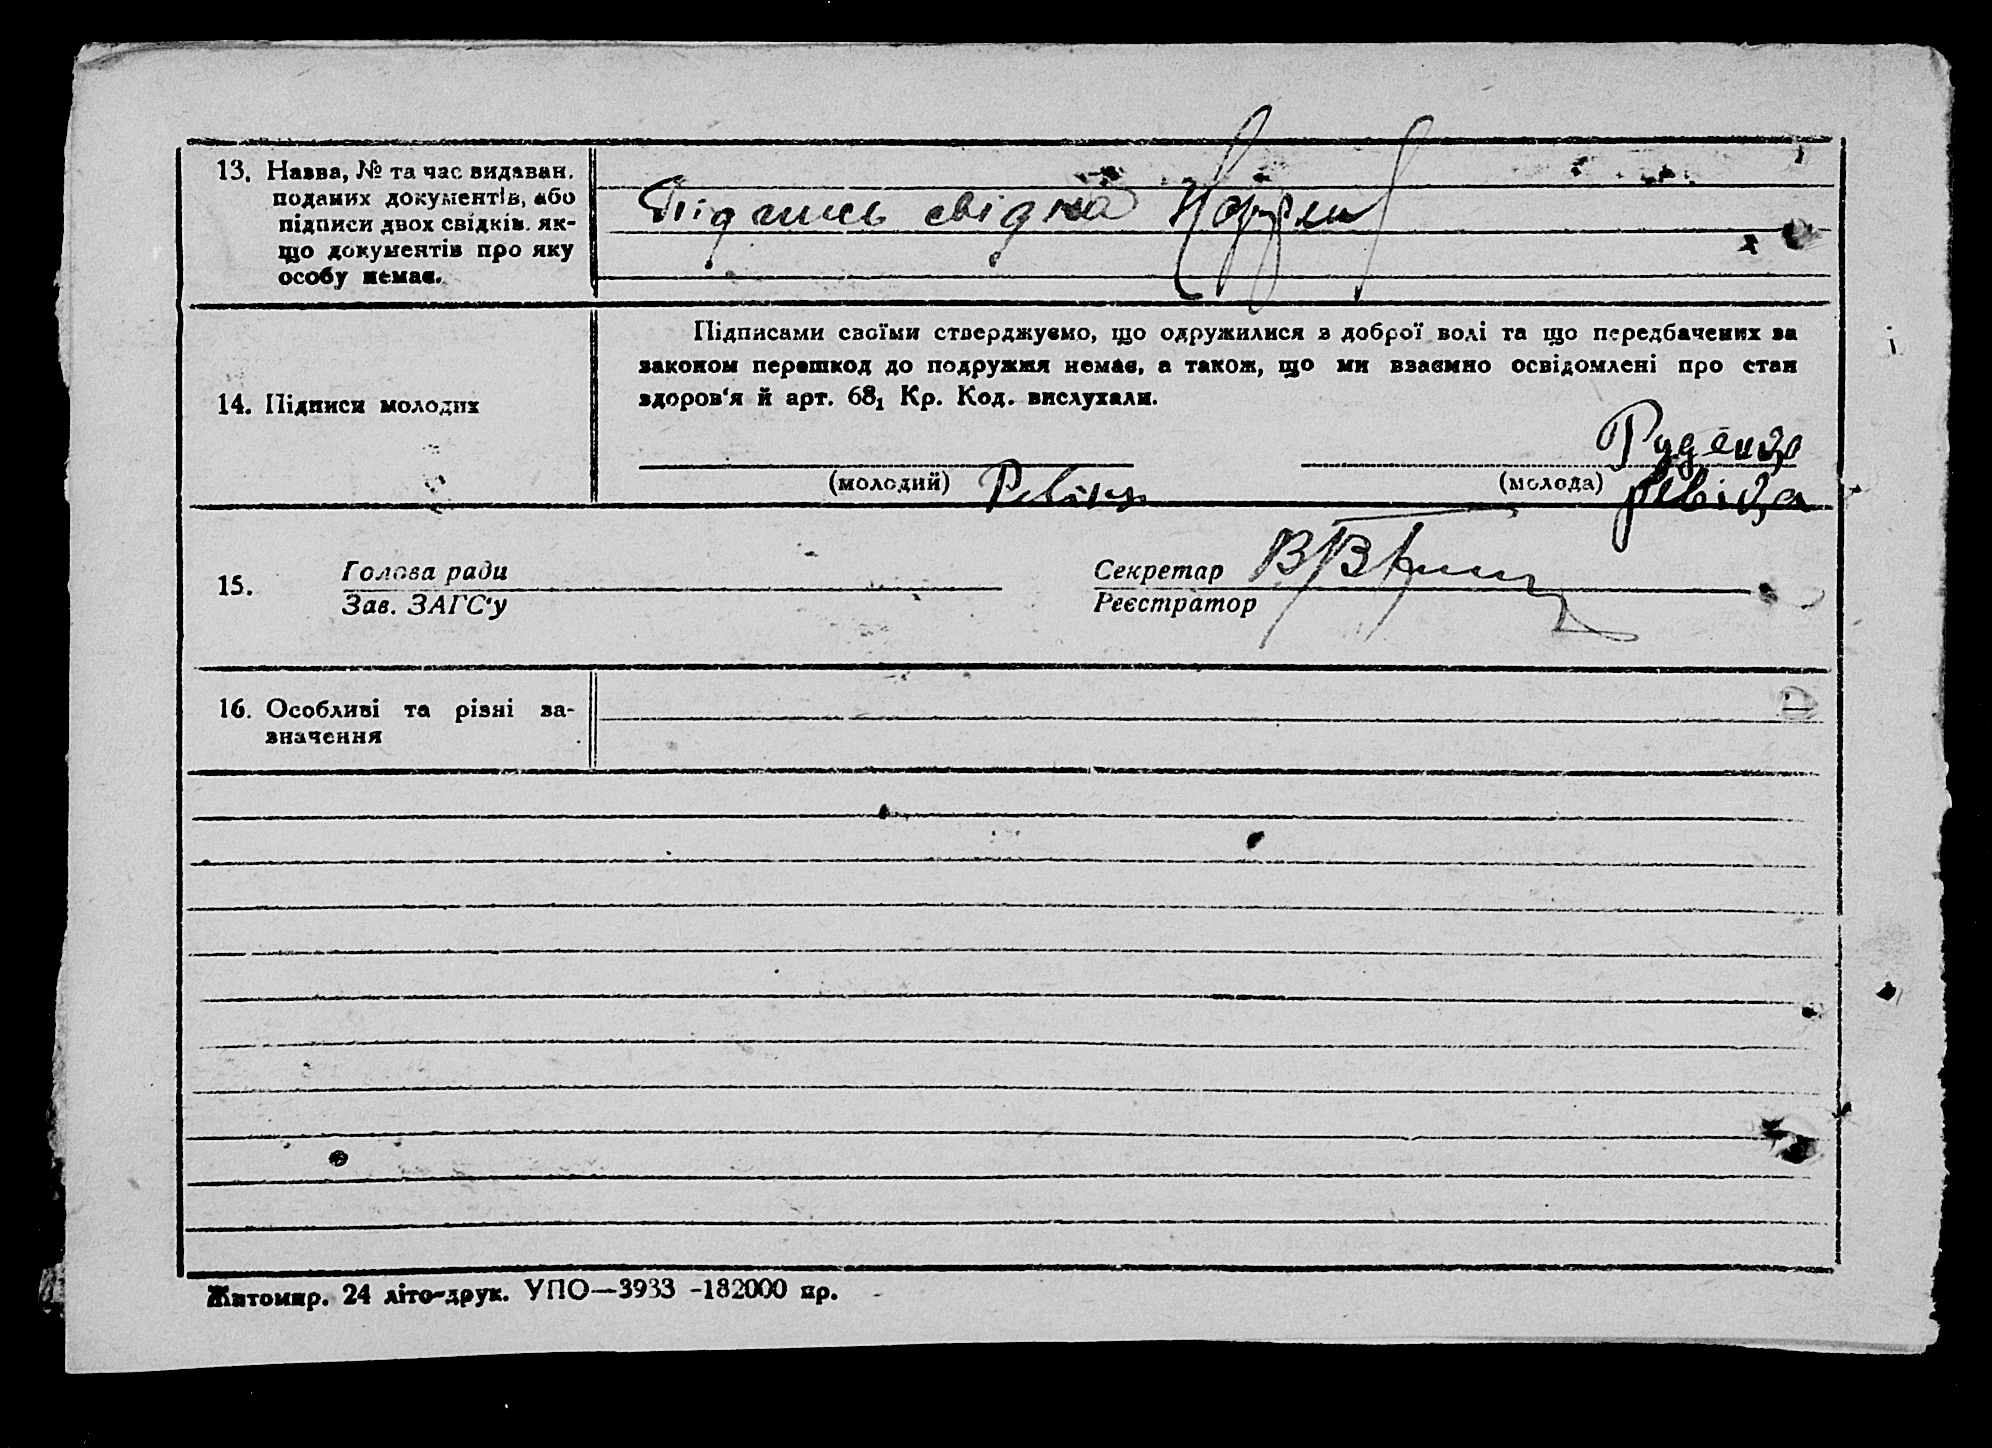 13. Назва, № та час видаван.
поданих документів, або
підписи двох свідків, як-
що документів про яку
особу немає.
Підпись свідка
Підписами своїми стверджуємо, що одружилися з доброї волі та що передбачених за
законом перешкод до подружжя немає, а також, що ми взаємно освідомлені про стан
здоров'я й арт. 68₁ Кр. Код. вислухали.
14. Підписи молодих
Руденко
(молодий) (молода)
15. Голова ради
Зав. ЗАГС'у
Секретар
Реєстратор
16. Особливі та різні за-
значення
Житомир. 24 літо-друк. УПО—3933 -182000 пр.